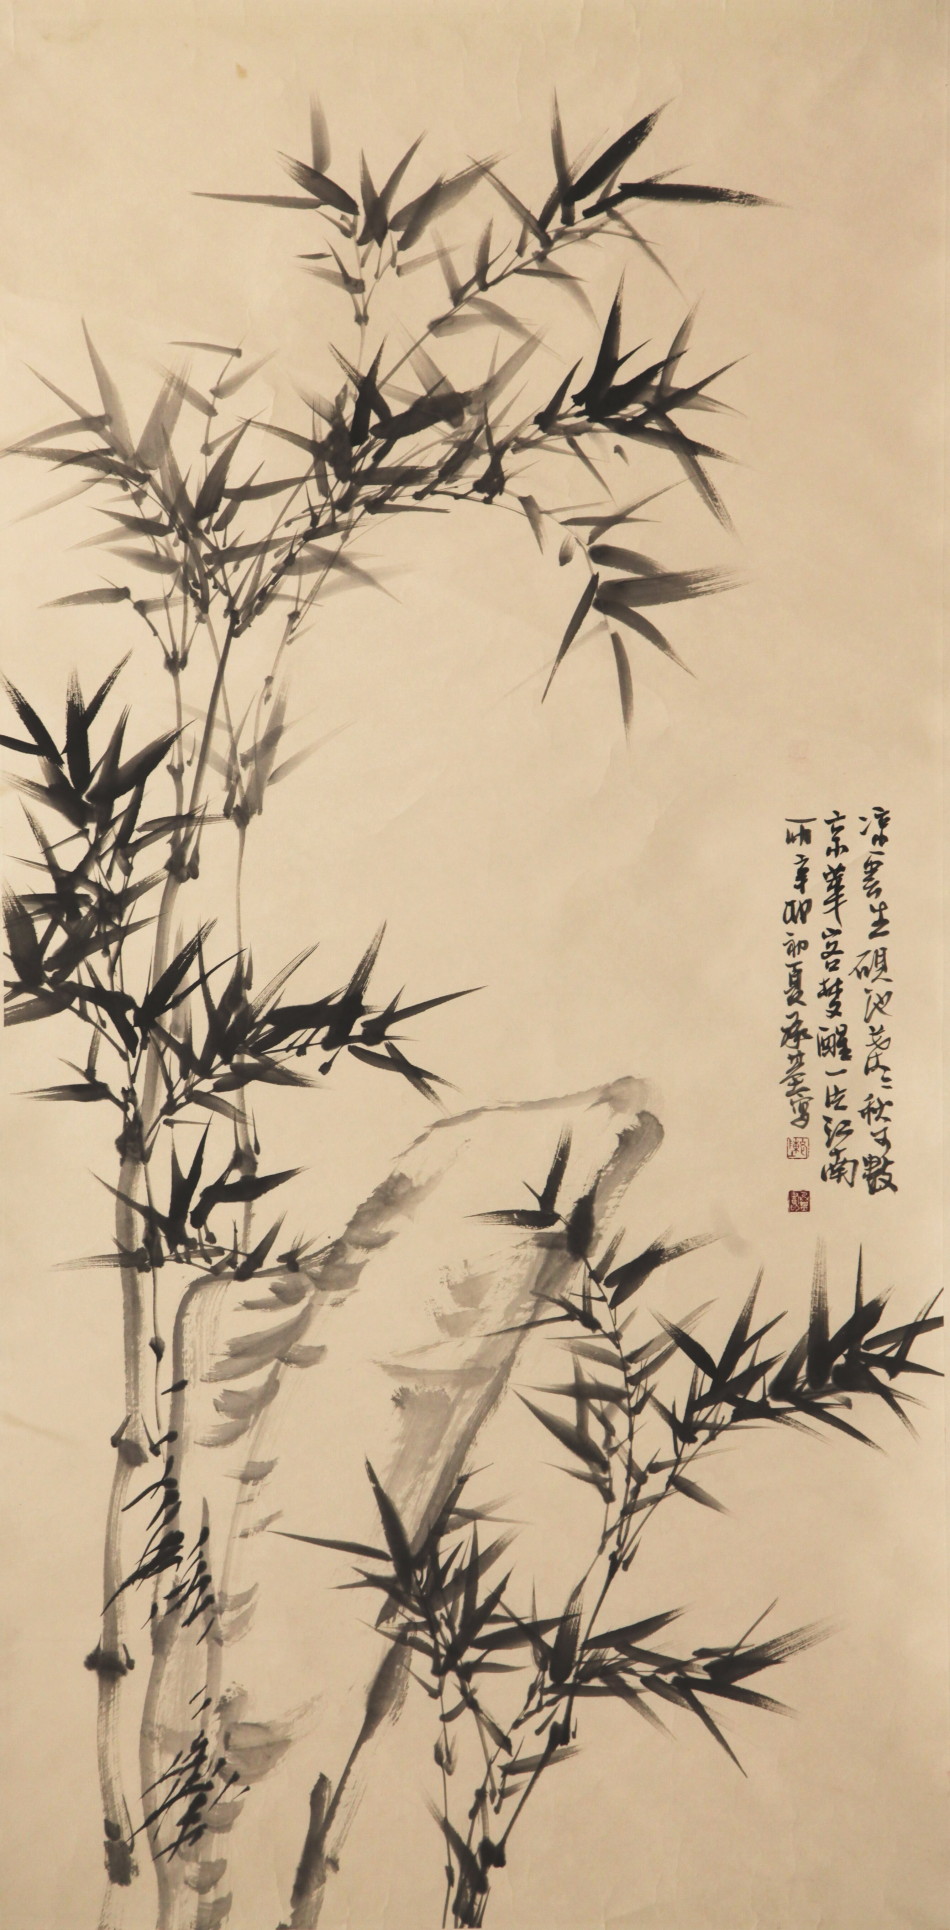 凉雲生硯池葉〻秋可數
京華客夢醒一片江南
雨辛卯初夏承基寫